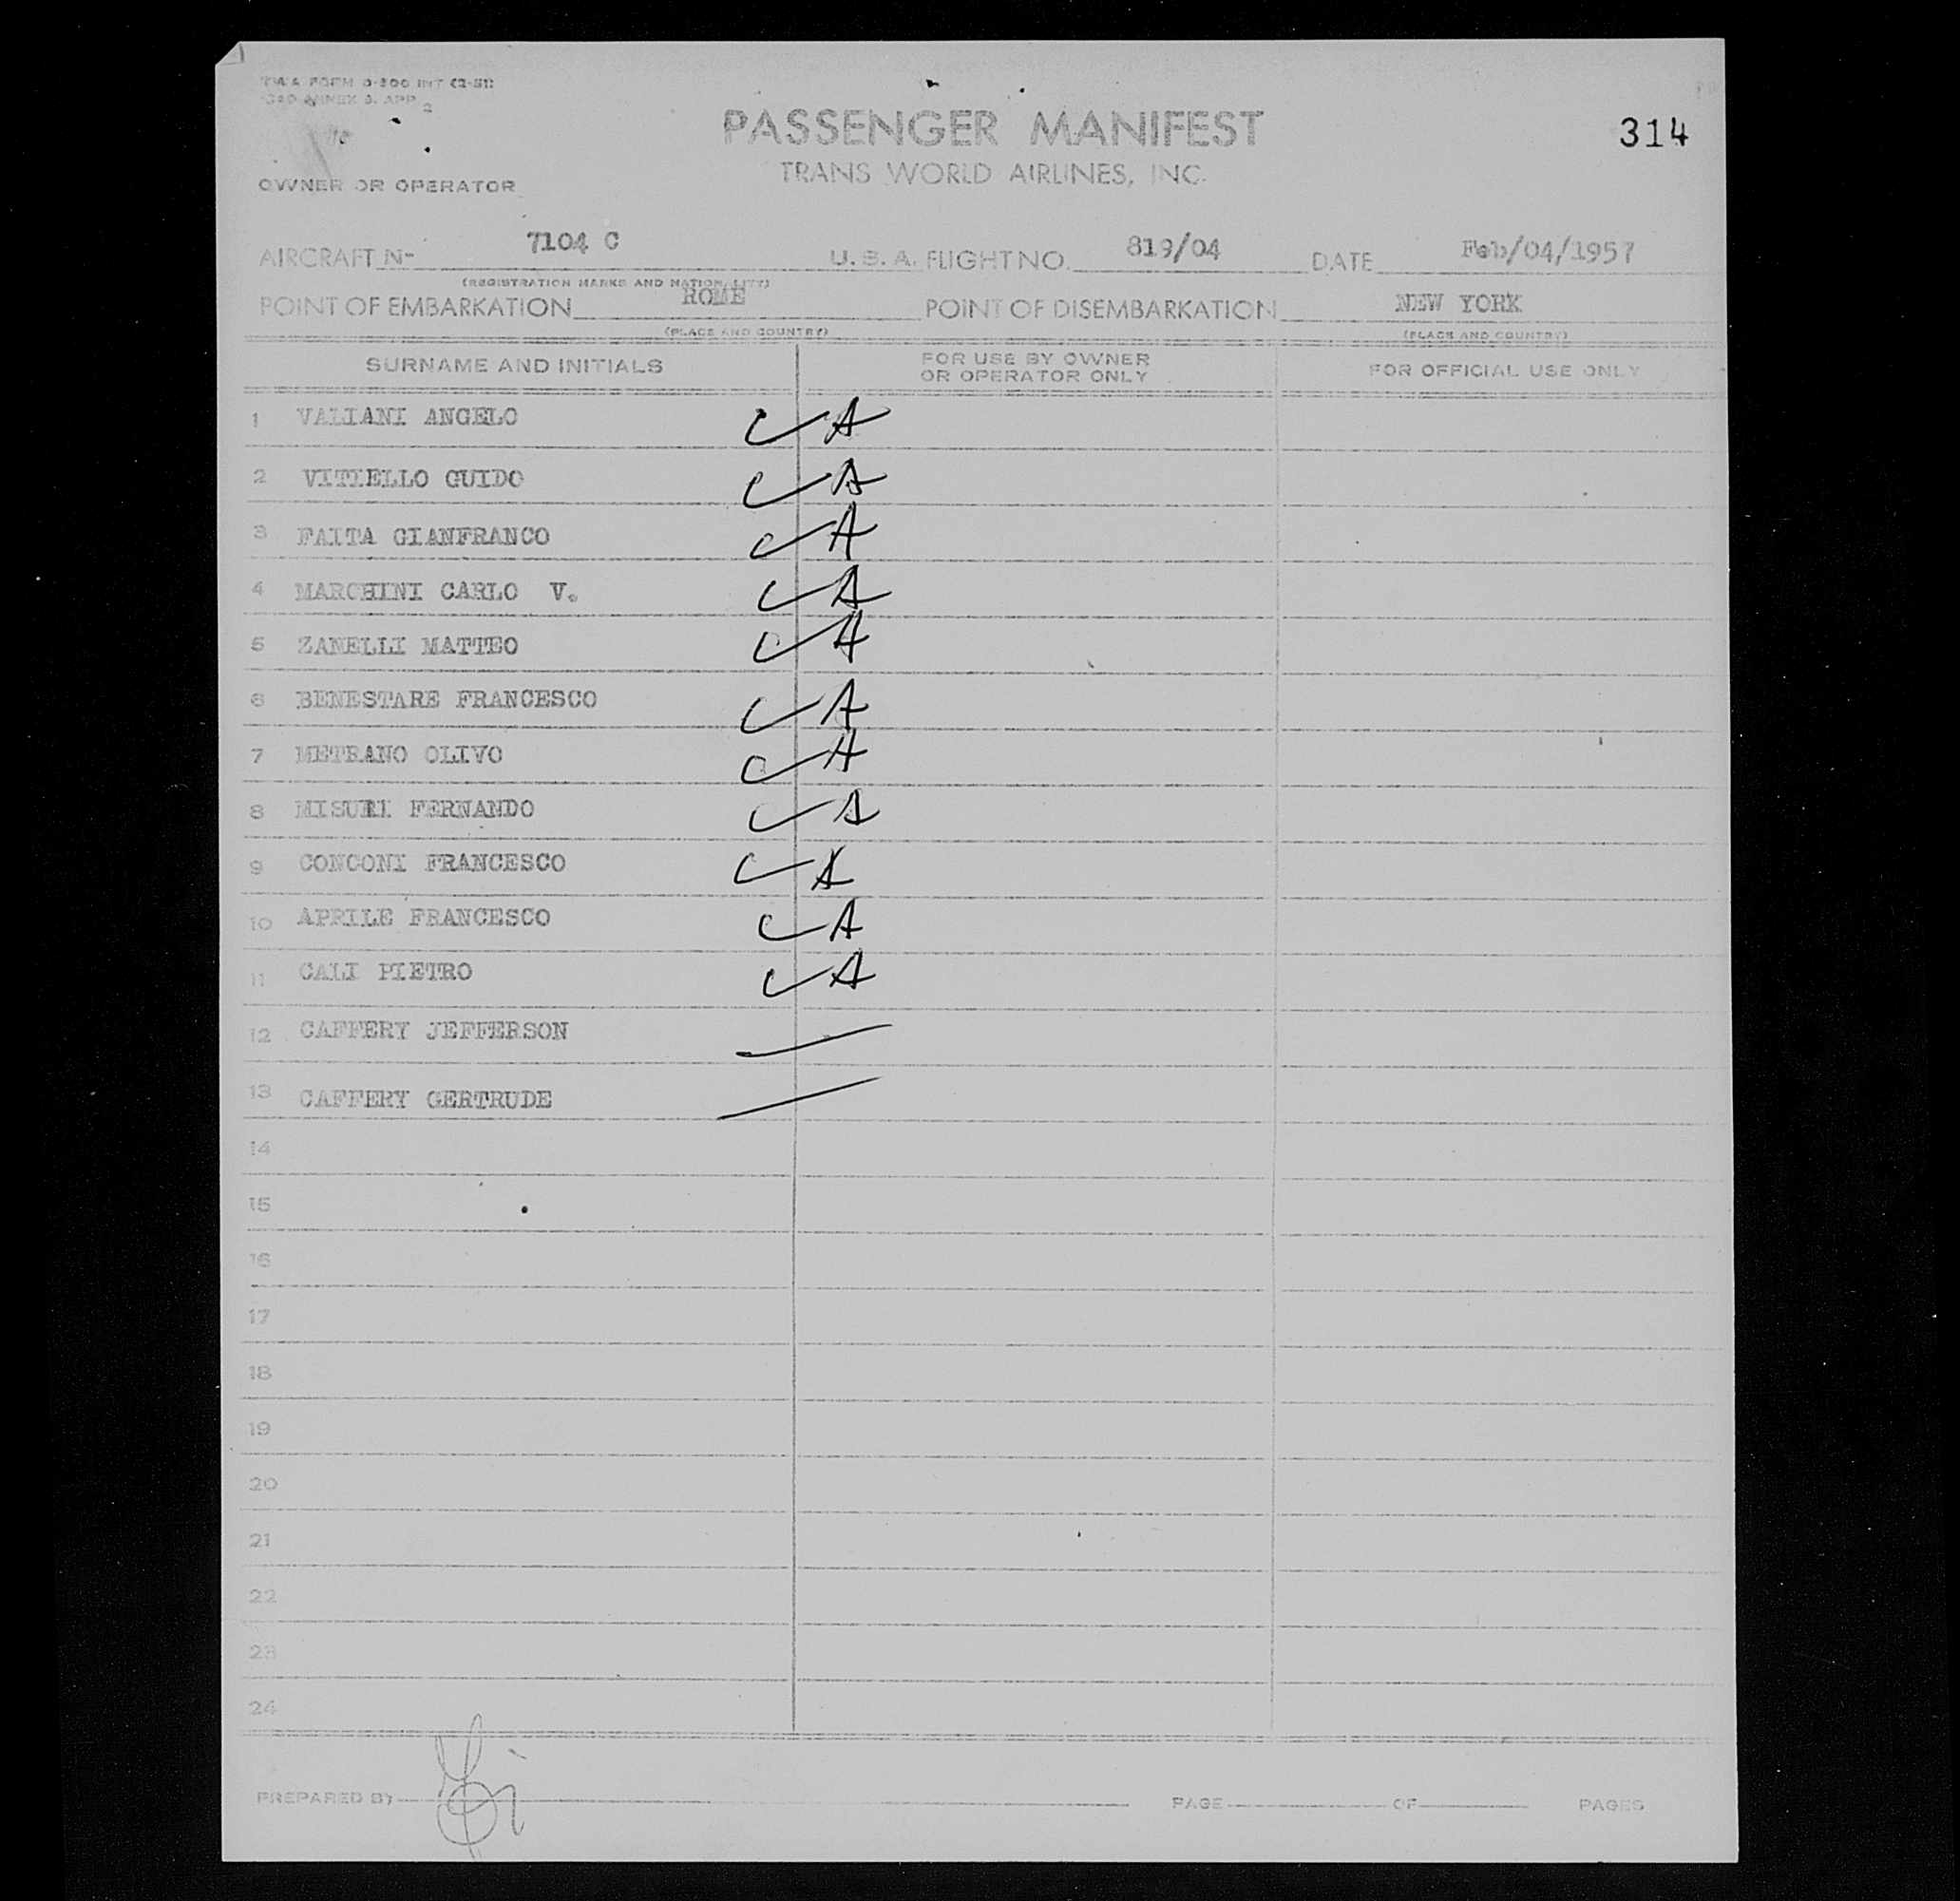 TWA FORM 0-300 INT (2-51)
ICAO ANNEX 9, APP 2
PASSENGER MANIFEST
314
TRANS WORLD AIRLINES, INC.
OWNER OR OPERATOR
AIRCRAFT N- 7104 C U. S. A. FLIGHT NO. 819/04 DATE Feb/04/1957
(REGISTRATION MARKS AND NATIONALITY)
POINT OF EMBARKATION ROME POINT OF DISEMBARKATION NEW YORK
(PLACE AND COUNTRY) (PLACE AND COUNTRY)
SURNAME AND INITIALS FOR USE BY OWNER OR OPERATOR ONLY FOR OFFICIAL USE ONLY
1 VALIANI ANGELO A
2 VITIELLO GUIDO A
3 FAITA GIANFRANCO A
4 MARCHINI CARLO V. A
5 ZANELLI MATTEO A
6 BENESTARE FRANCESCO A
7 METRANO OLIVO A
8 MISURI FERNANDO A
9 CONCONI FRANCESCO A
10 APRILE FRANCESCO A
11 CALI PIETRO A
12 CAFFERY JEFFERSON
13 CAFFERY GERTRUDE
14
15
16
17
18
19
20
21
22
23
24
PREPARED BY PAGE OF PAGES